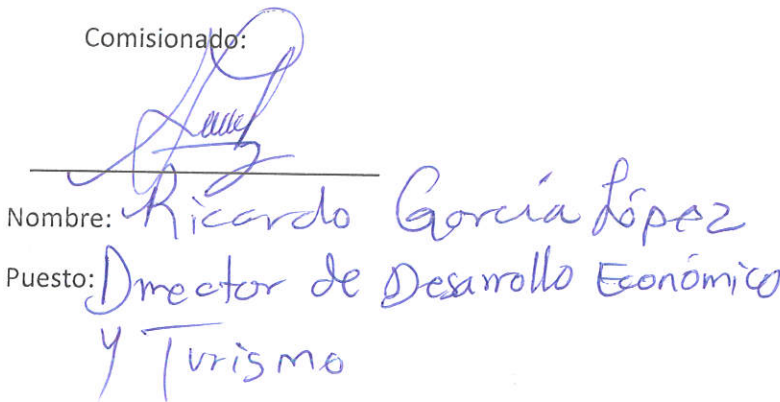 Comisionado:
Nombre: Ricardo García López
Puesto: Director de Desarrollo Económico
y Turismo